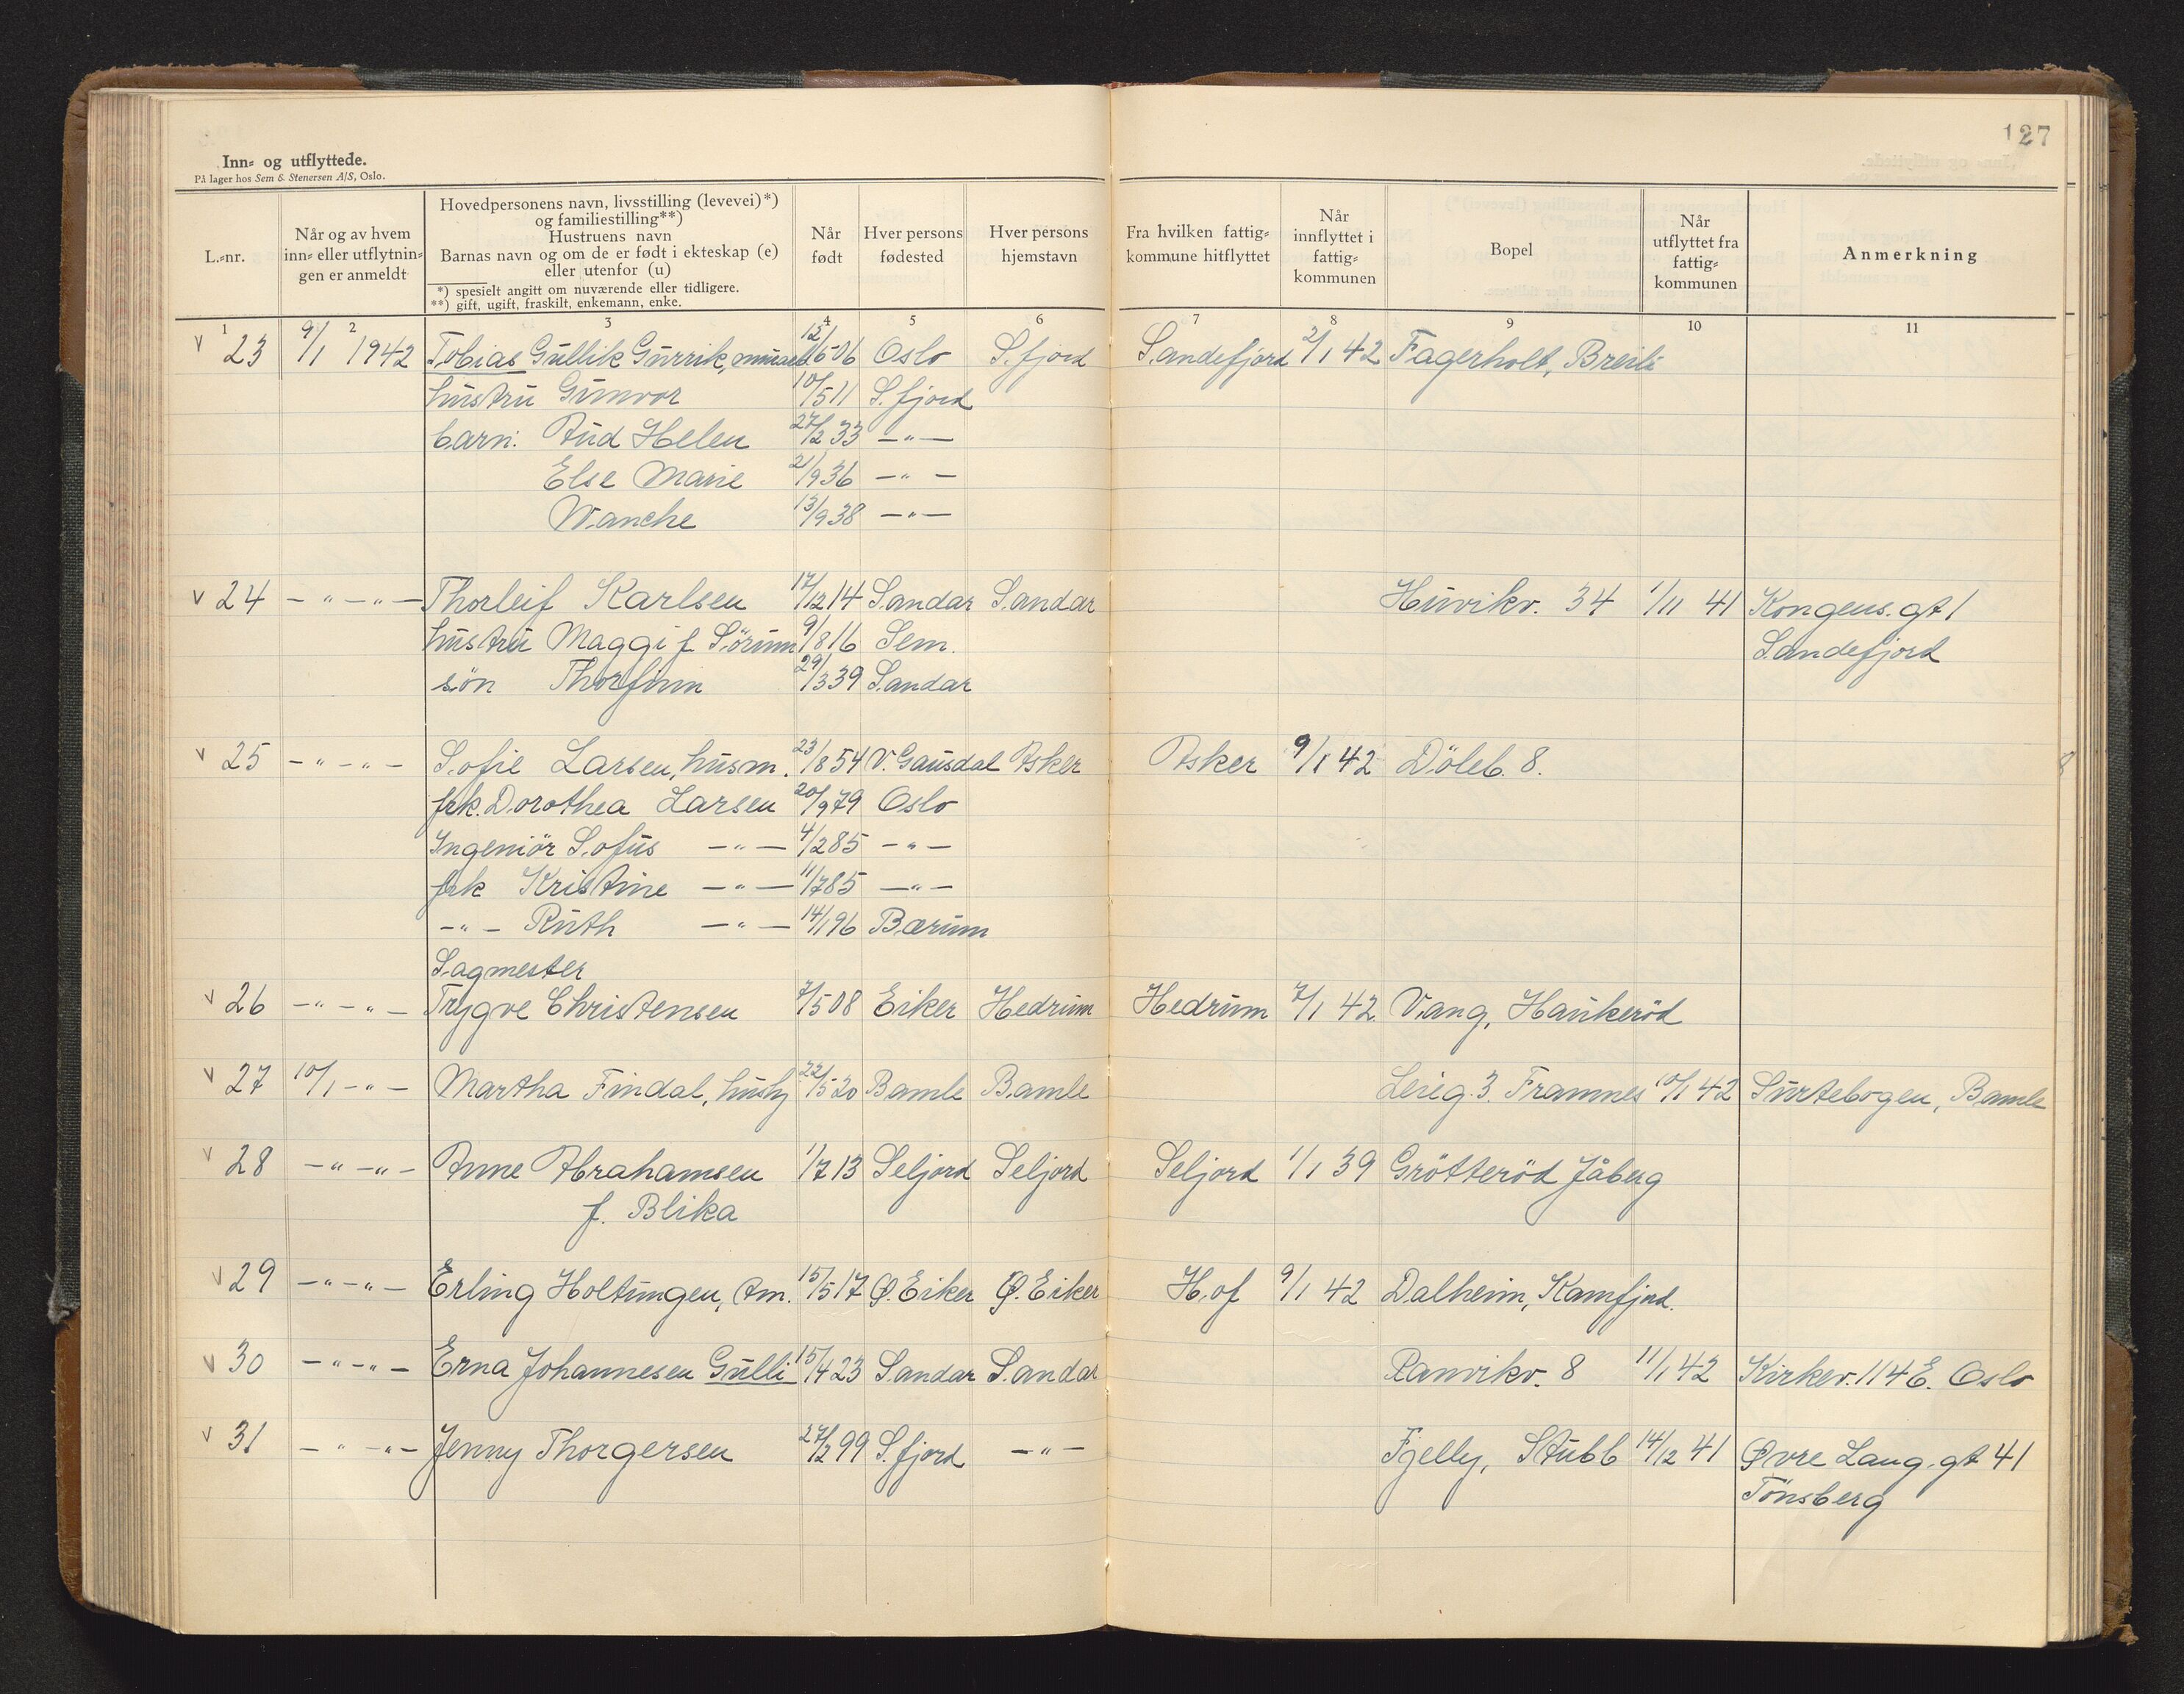 127
Inn- og utflyttede.
På lager hos Sem & Stenersen A/S, Oslo.
L.-nr.
Når og av hvem inn- eller utflytningen er anmeldt
Hovedpersonens navn, livsstilling (levevei)*) og familiestilling**)
Hustruens navn
Barnas navn og om de er født i ekteskap (e) eller utenfor (u)
*) spesielt angitt om nuværende eller tidligere.
**) gift, ugift, fraskilt, enkemann, enke.
Når født
Hver persons fødested
Hver persons hjemstavn
Fra hvilken fattigkommune hitflyttet
Når innflyttet i fattigkommunen
Bopel
Når utflyttet fra fattigkommunen
Anmerkning
1 2 3 4 5 6 7 8 9 10 11
v 23 9/1 1942 Tobias Gullik Gurrik, 12/6 06 Oslo S.fjord Sandefjord 2/1 42 Fagerholt, Breili
hustru Gunvor 10/5 11 S.fjord
barn: Aud Helen 27/2 33 -"-
Else Marie 21/9 36 -"-
Wanche 13/9 38 -"-
v 24 -"-"- Thorleif Karlsen 17/12 14 Sandar Sandar Huvikv. 34 1/11 41 Kongens.gt 1
hustru Maggi f Sörum 9/8 16 Sem. Sandefjord
sön Thorfinn 29/3 39 Sandar
v 25 -"-"- Sofie Larsen, husm. 23/8 54 V. Gausdal Asker Asker 9/1 42 Döleb. 8.
frk. Dorothea Larsen 20/9 79 Oslo
Ingeniör Sofus -"- 4/2 85 -"-
frk Kristine -"- 11/7 85 -"-
-"- Ruth -"- 14/1 96 Bærum
Sagmester
v 26 -"-"- Trygve Christensen 7/5 08 Eiker Hedrum Hedrum 7/1 42 Vang, Haukeröd
v 27 10/1 -"- Martha Findal, hushj 22/5 20 Bamle Bamle 3. Framnes 10/1 42 Surtebogen, Bamle
v 28 -"-"- Anne Abrahamsen 1/7 13 Seljord Seljord Seljord 1/1 39 Grötteröd Jåberg
f. Blika
v 29 -"-"- Erling Holtungen, tm. 15/5 17 Ø. Eiker Ø. Eiker Hof 9/1 42 Dalheim, Kamfjord.
v 30 -"-"- Erna Johannesen Gulli 15/4 23 Sandar Sandar Ranvikv. 8 11/1 42 Kirkev. 114 E. Oslo
v 31 -"-"- Jenny Thorgersen 27/2 99 S.fjord -"- Fjelly, Stubb 14/12 41 Øvre Lang.gt 41
Tönsberg